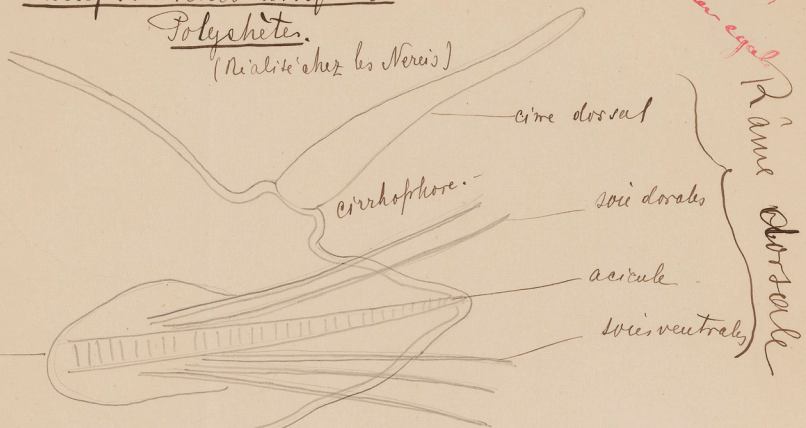 Polychètes.
(Réalisé chez les Nereis)
cirre dorsal
cirrhophore.-
soie dorales
acicule
soies ventrales
Râme dorsale